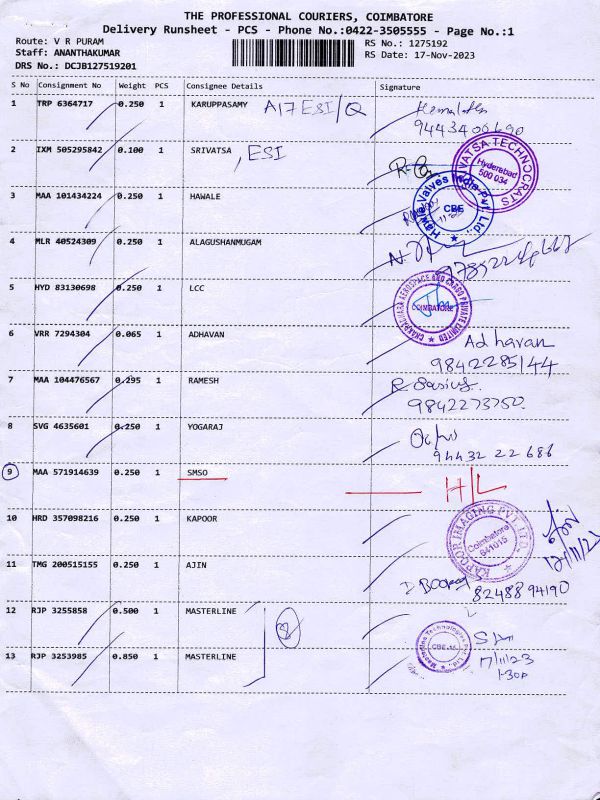 THE PROFESSIONAL COURIERS, COIMBATORE
Delivery Runsheet - PCS - Phone No.:0422-3505555 - Page No.:1
Route: V R PURAM
Staff: ANANTHAKUMAR
DRS No.: DCJB127519201
RS No.: 1275192
RS Date: 17-Nov-2023
S No Consignment No Weight PCS Consignee Details Signature
1 TRP 6364717 0.250 1 KARUPPASAMY A17 ESI/Q
2 IXM 505295842 0.100 1 SRIVATSA, ESI
VATSA TECHNOCRATS Hyderabad 500 034
3 MAA 101434224 0.250 1 HAWALE
Hawle Valves India Pvt. Ltd., CBE
4 MLR 40524309 0.250 1 ALAGUSHANMUGAM
5 HYD 83130698 0.250 1 LCC
AEROSPACE AND CARGO PRIVATE LIMITED COIMBATORE
6 VRR 7294304 0.065 1 ADHAVAN Adhavan
9842285144
7 MAA 104476567 0.295 1 RAMESH
9842273750
8 SVG 4635601 0.250 1 YOGARAJ
94432 22 686
9 MAA 571914639 0.250 1 SMSO H/L
10 HRD 357098216 0.250 1 KAPOOR
KAPOOR IMAGING PVT. LTD. Coimbatore 641015
11 TMG 200515155 0.250 1 AJIN
8248894190
12 RJP 3255858 0.500 1 MASTERLINE
13 RJP 3253985 0.850 1 MASTERLINE
Masterline Technologies Pvt. Ltd., CBE-15
17/11/23
1.30p